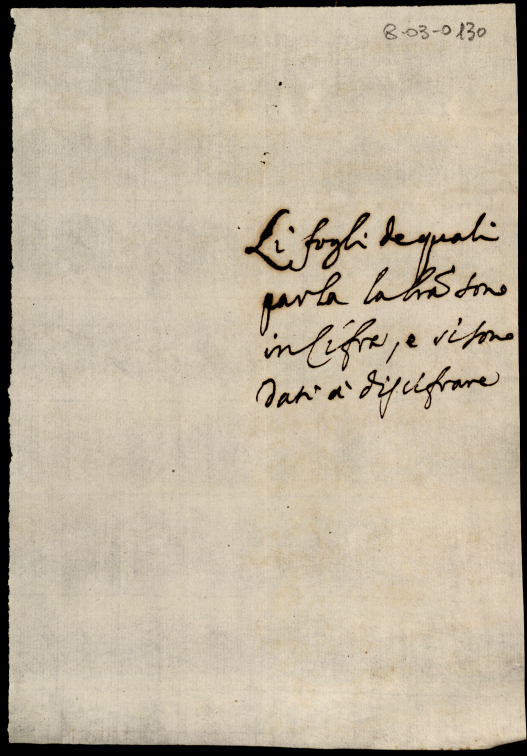 8-03-0130
Li fogli de quali
parla la lrã sono
in Cifra, e si sono
dati à discifrare